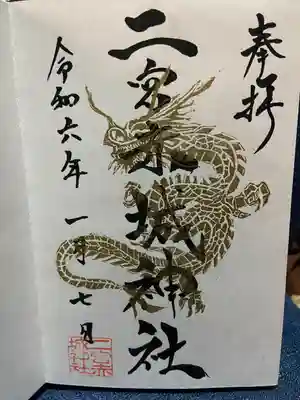 奉拝
二宮赤城神社
令和六年 一月七日